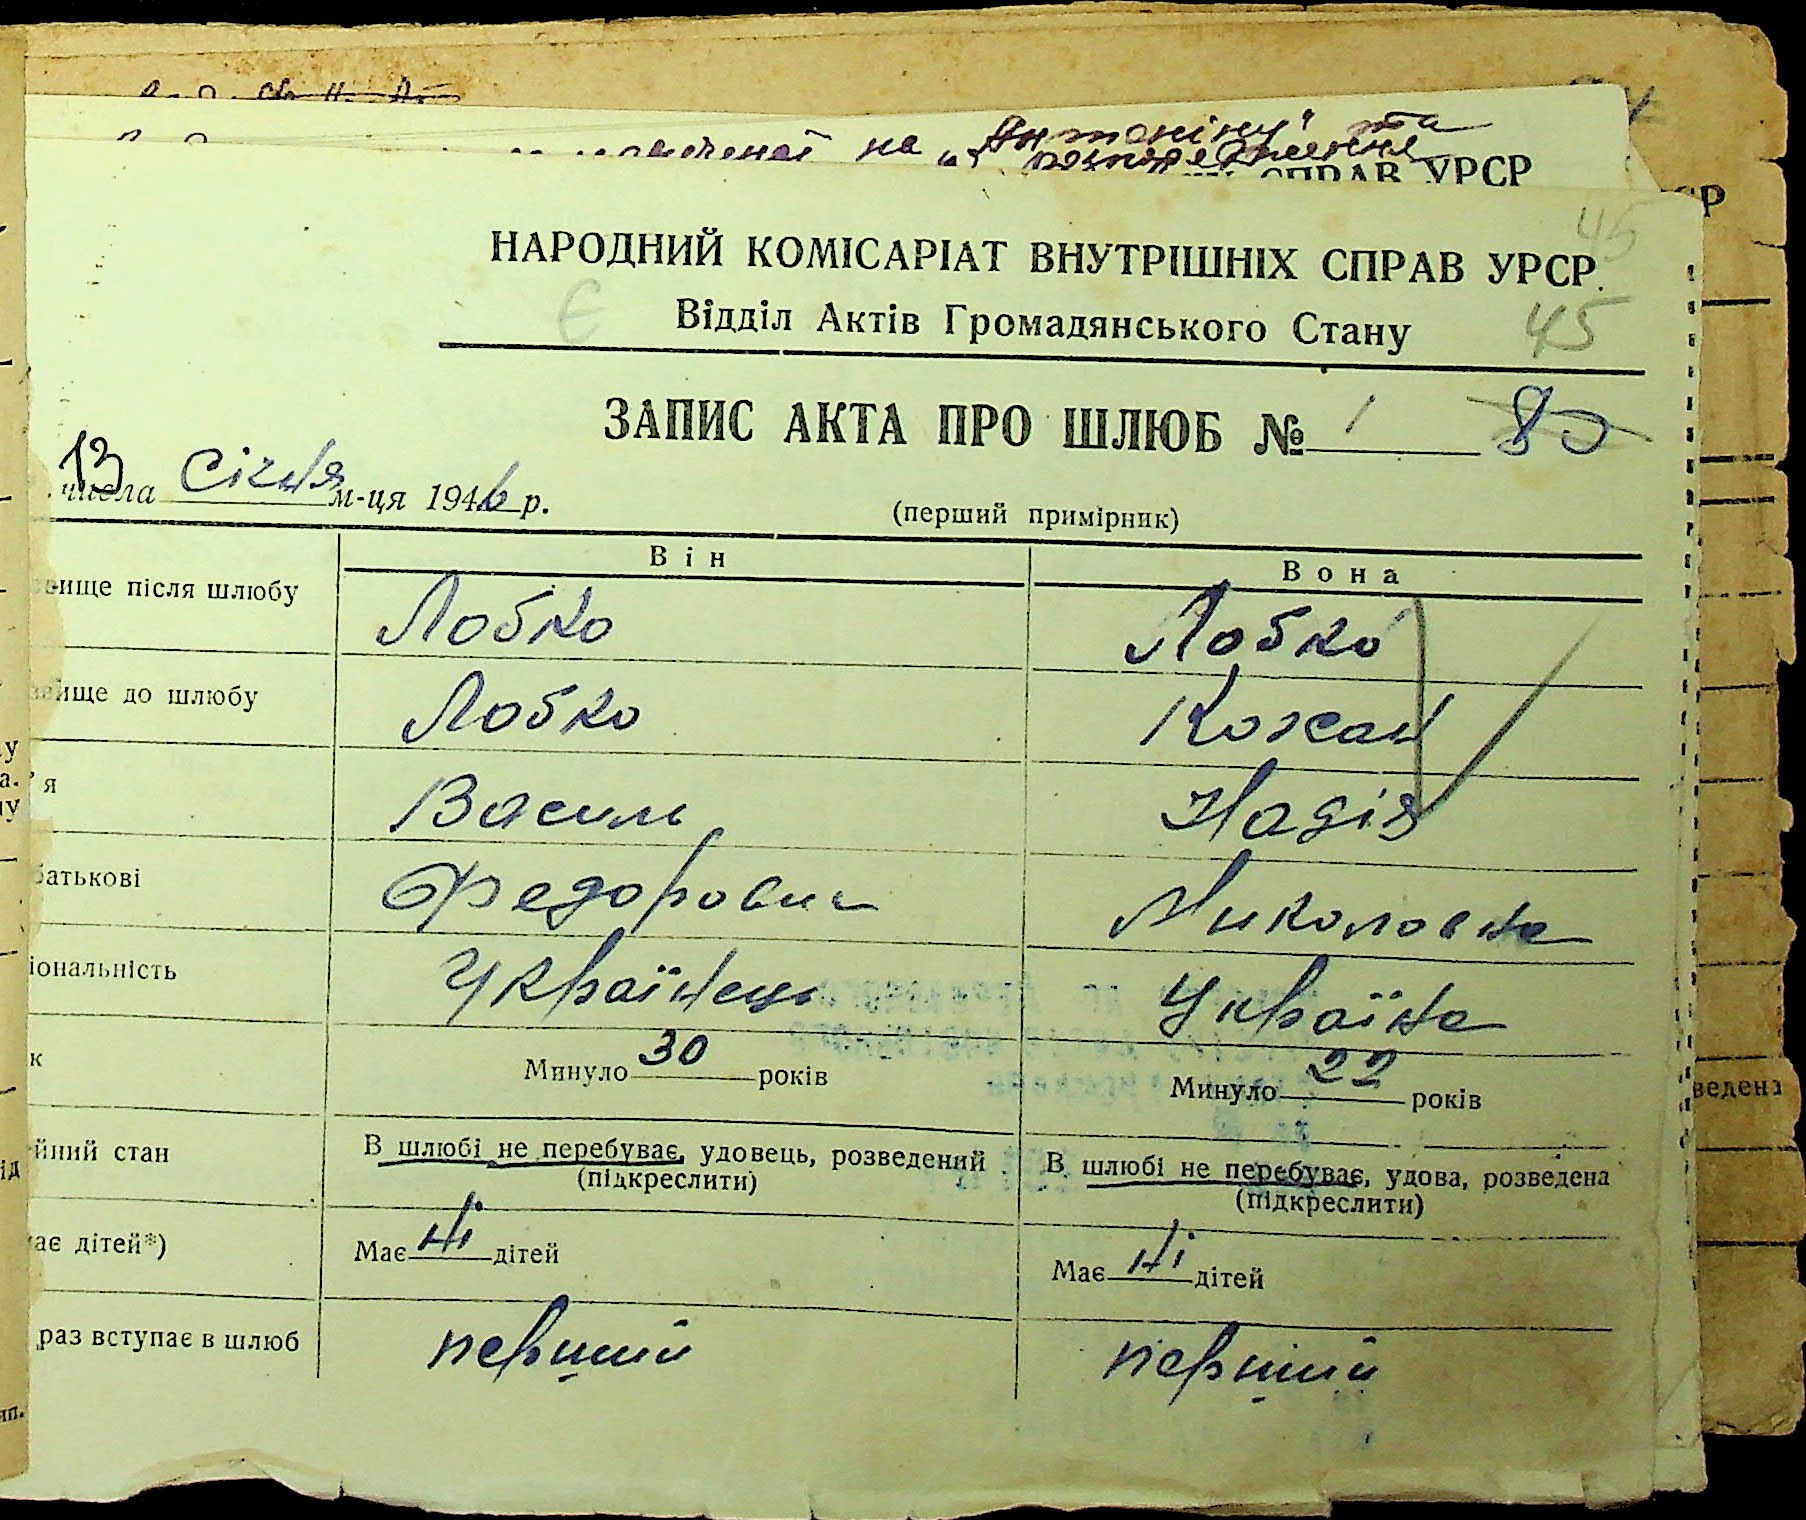 на „Антоніну" та
СПРАВ УРСР
СР
45
НАРОДНИЙ КОМІСАРІАТ ВНУТРІШНІХ СПРАВ УРСР
Є
Відділ Актів Громадянського Стану 45
ЗАПИС АКТА ПРО ШЛЮБ № 1 80
13 числа січня м-ця 1946 р.
(перший примірник)
Він Вона
вище після шлюбу Лобко Лобко
звище до шлюбу Лобко Кожан
’я Василь Надія
батькові Федорович Миколовна
іональність Українець Українка
к Минуло 30 років Минуло 22 років
ейний стан В шлюбі не перебуває, удовець, розведений В шлюбі не перебуває, удова, розведена
(підкреслити) (підкреслити)
має дітей*) Має ні дітей Має ні дітей
раз вступає в шлюб перший перший
ведена